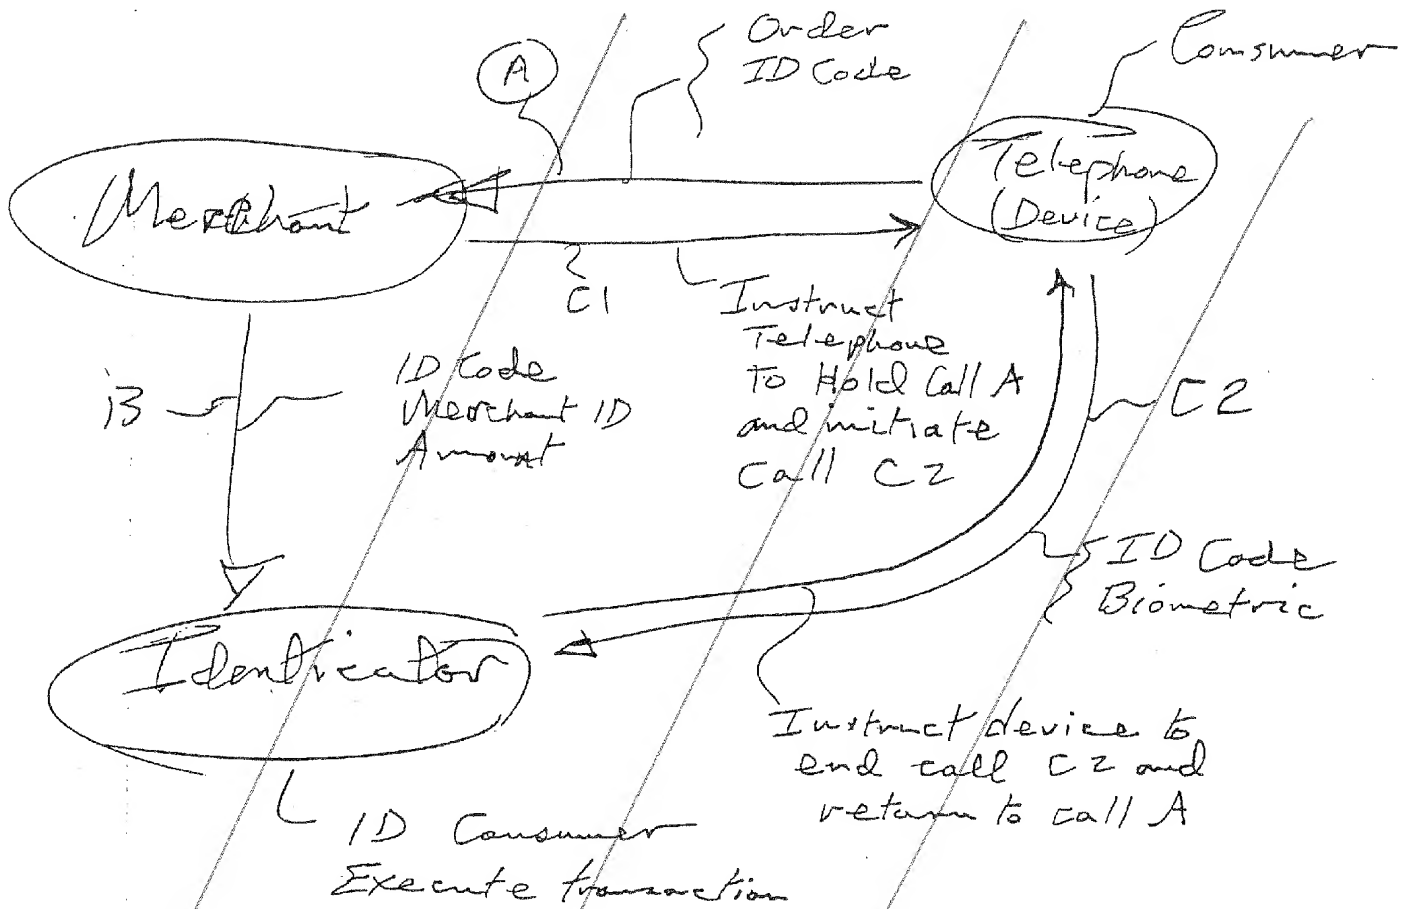 Order
ID Code
A
Consumer
Merchant
Telephone
(Device)
C1
Instruct
Telephone
to Hold Call A
and initiate
Call C2
B
ID Code
Merchant ID
Amount
C2
ID Code
Biometric
Identicator
Instruct device to
end call C2 and
return to call A
ID Consumer
Execute transaction